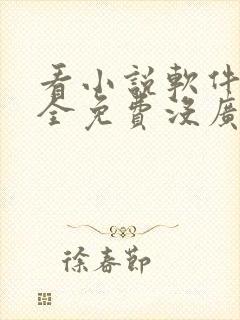 看小說軟件
全免費沒廣
徐春節